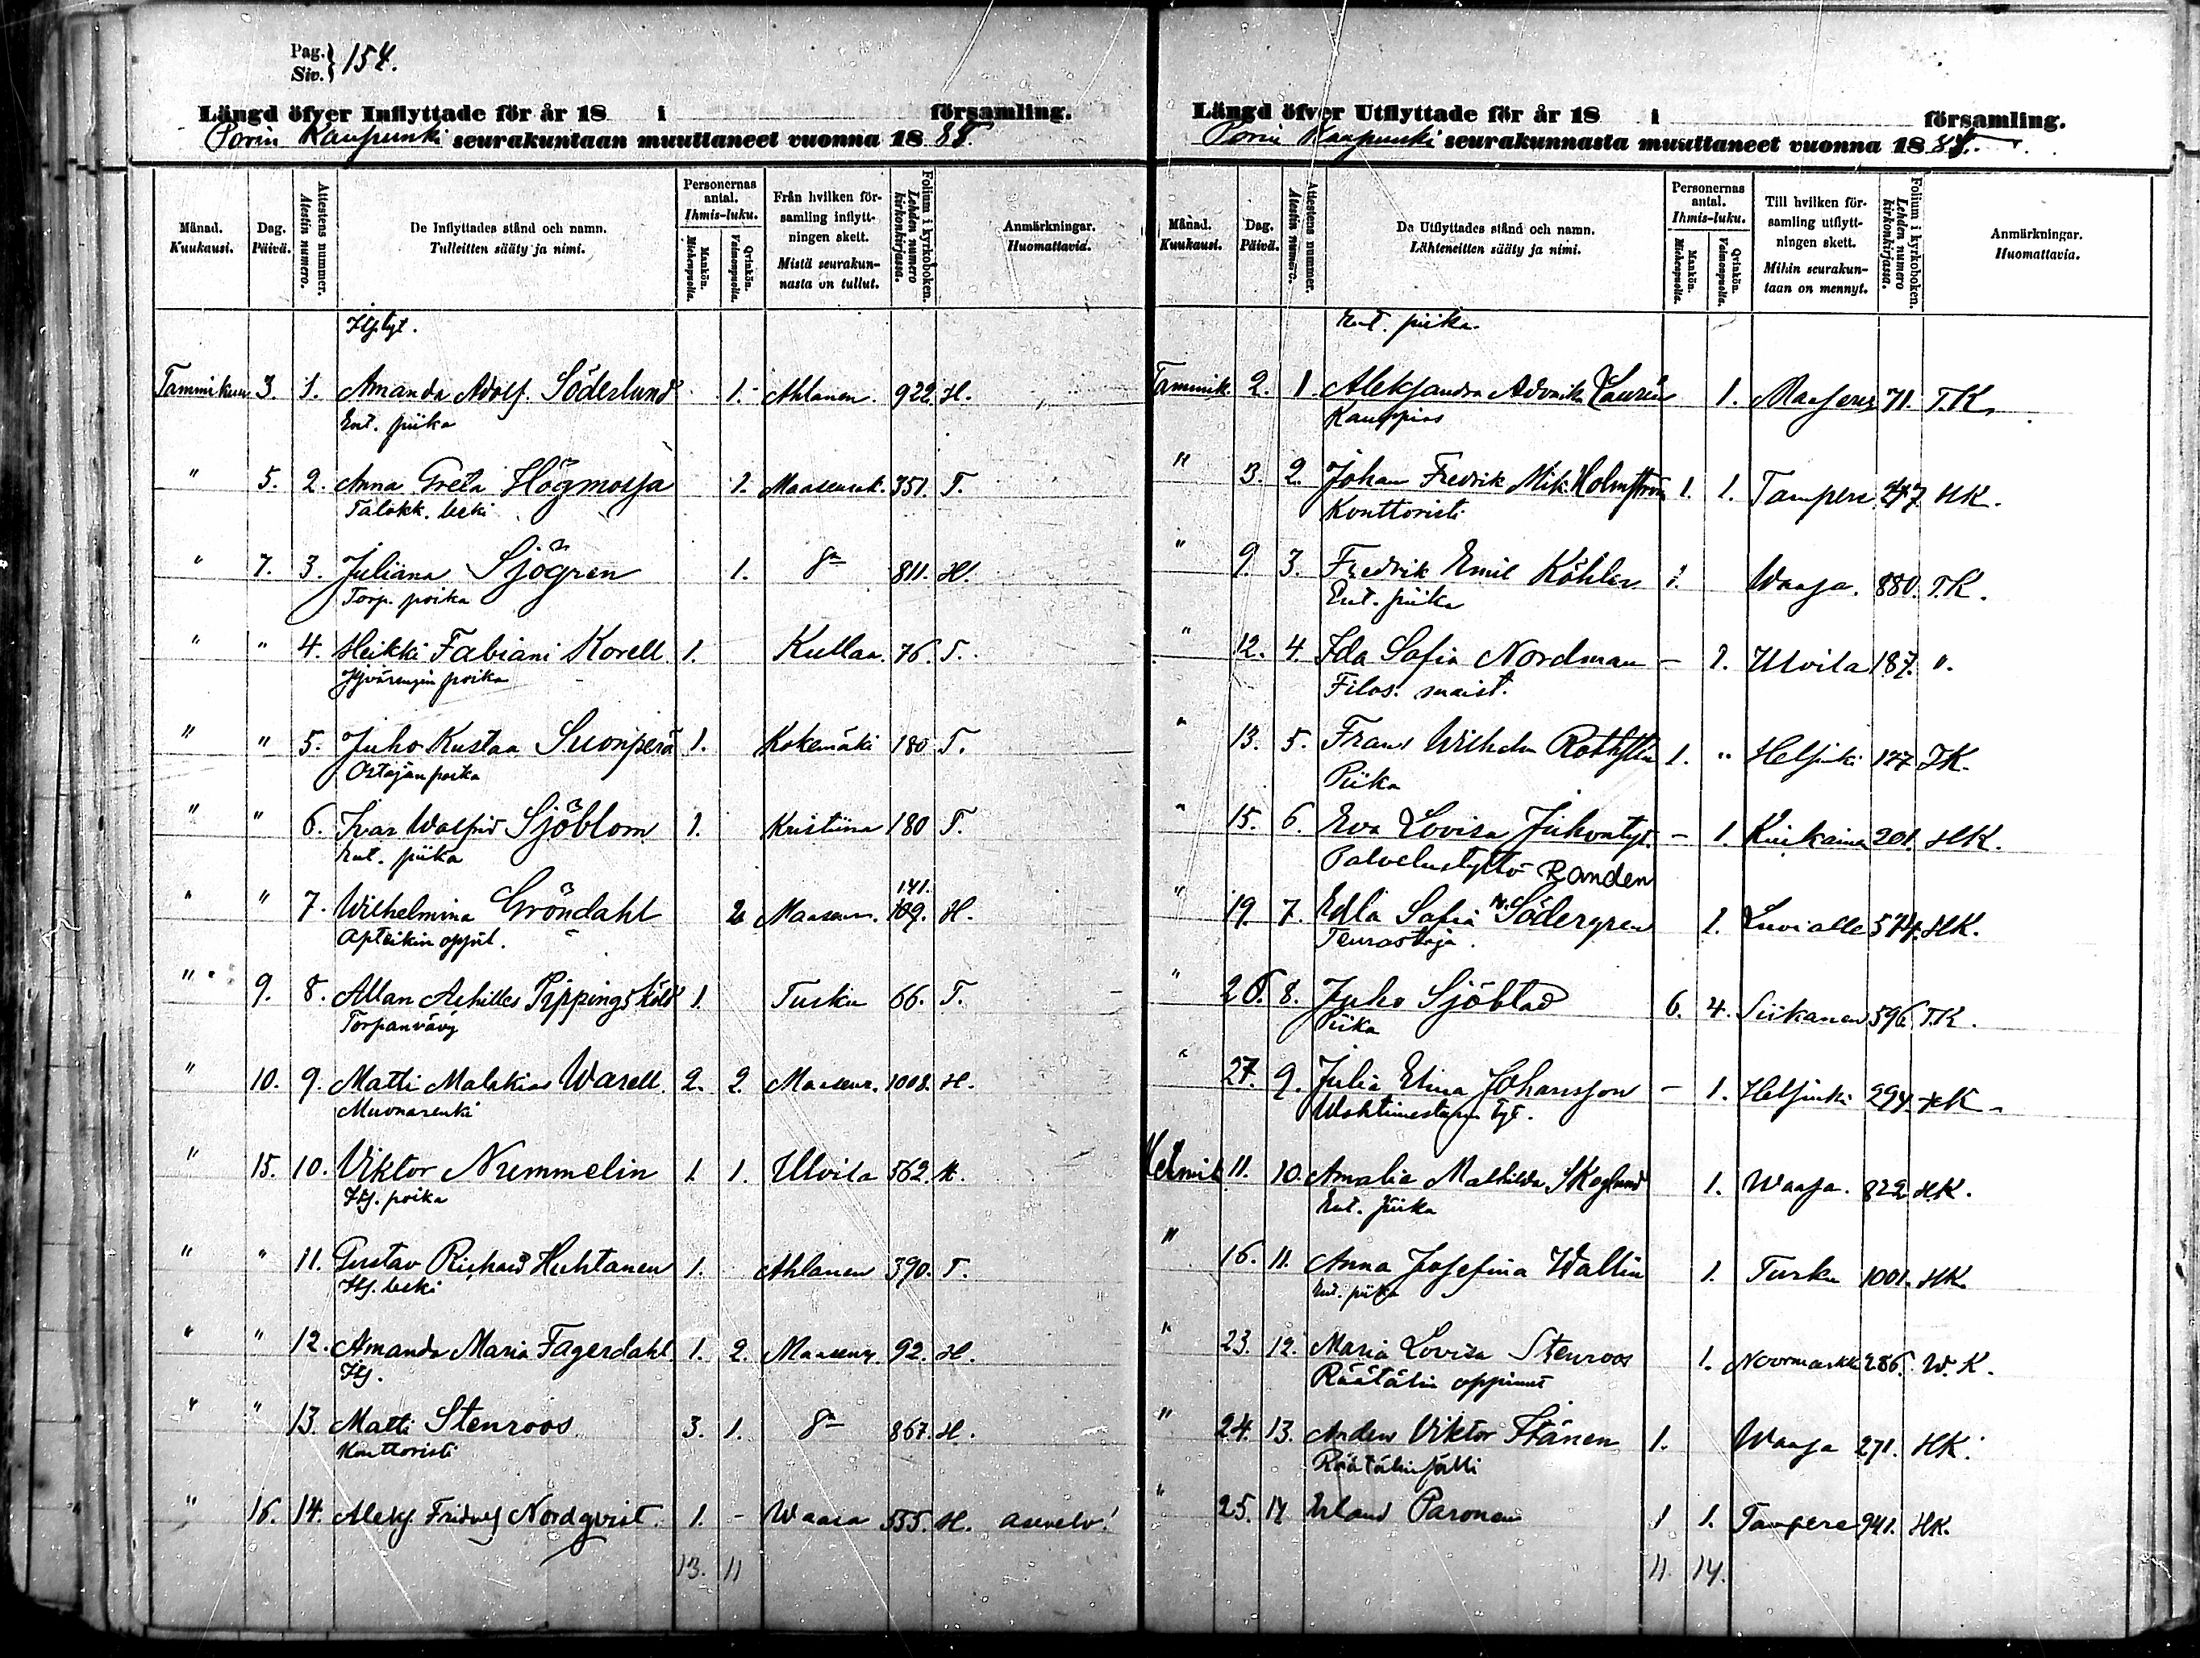 Pag.
Siv. } 154.
Längd öfver Inflyttade för år 18 i församling.
Porin Kaupunki seurakuntaan muuttaneet vuonna 18 88.
Månad. Kuukausi.
Dag. Päivä.
Attestens nummer. Atestin numero.
De Inflyttades stånd och namn. Tulleitten sääty ja nimi.
Personernas antal. Ihmis-luku.
Mankön. Miehenpuolia.
Qvinkön. Vaimonpuolia.
Från hvilken församling inflyttningen skett. Mistä seurakunnasta on tullut.
Folium i kyrkoboken. Lehden numero kirkonkirjassa.
Anmärkningar. Huomattavia.
Itstyt.
Tammikuu 3. 1. Amanda Adolf. Söderlund 1. Ahlanen. 922. H.
Ent. piika
" 5. 2. Anna Greta Högmossa 1. Maaseurak. 351. T.
Talokk. leski
" 7. 3. Juliana Sjögren 1. 811. H.
Torp. poika
" " 4. Heikki Fabiani Korell. 1. Kullaa. 76. T.
poika
" " 5. Juho Kustaa Suonperä 1. Kokemäki 180 T.
Ostajan poika
" " 6. Ivar Walfrid Sjöblom 1. Kristiina 180 T.
Ent. piika
" " 7. Wilhelmina Gröndahl 2 Maaseur. 141. 109. H.
Apteikin oppil.
" 9. 8. Allan Achilles Pippingsköld 1. Turku 66. T.
Torpanvävy
" 10. 9. Matti Malakias Warell. 2. 2. Maaseur. 1008. H.
Muonarenki
" 15. 10. Viktor Nummelin 1. 1. Ulvila 562. H.
Itj. poika
" " 11. Gustav Richard Huhtanen 1. Ahlanen 390. T.
Itj. leski
" " 12. Amanda Maria Fagerdahl. 1. 2. Maaseur. 92. H.
Itj.
" " 13. Matti Stenroos 3. 1. 867. H.
Konttoristi
" 16. 14. Aleks. Fridolf Nordqvist. 1. - Waasa 555. H. asevelv!
13. 11
Längd öfver Utflyttade för år 18 i församling.
Porin Kaupunki seurakunnasta muuttaneet vuonna 18 88.
Månad. Kuukausi.
Dag. Päivä.
Attestens nummer. Atestin numero.
De Utflyttades stånd och namn. Lähteneitten sääty ja nimi.
Personernas antal. Ihmis-luku.
Mankön. Miehenpuolia.
Qvinkön. Vaimonpuolia.
Till hvilken församling utflyttningen skett. Mihin seurakuntaan on mennyt.
Folium i kyrkoboken. Lehden numero kirkonkirjassa.
Anmärkningar. Huomattavia.
Ent. piika.
Tammik. 2. 1. Aleksandra Laurén 1. Maaseur. 71. T.K.
Kauppias
" 3. 2. Johan Fredrik Mik. Holmström 1. 1. Tampere 247. HK.
Konttoristi
" 9. 3. Fredrik Emil Köhler 1. Waasa. 880. T.K.
Ent. piika
" 12. 4. Ida Sofia Nordman - 1. Ulvila 187. ".
Filos. maist.
" 13. 5. Frans Wilhelm 1. " Helsinki 177 TK.
Piika
" 15. 6. Eva Lovisa Juhontyt. - 1. Kiukainen 201. HK.
Palvelustyttö Randen
" 19. 7. Edla Sofia Södergren 1. Luvialle 574. HK.
Teurastaja.
" 26. 8. Juho Sjöblad 6. 4. Siikanen 596. T.K.
Piika
" 27. 9. Julia Elina Johansson - 1. Helsinki 294. HK.
Wahtimestarin tyt.
Helmik. 11. 10. Amalia Mathilda Skoglund 1. Waasa. 822 HK.
Ent. piika
" 16. 11. Anna Josefina Wallin 1. Turku 1001. HK.
Ent. piika
" 23. 12. Maria Lovisa Stenroos 1. Noormarkku 286. W.K.
Räätälin oppinut
" 24. 13. Anders Viktor Stånen 1. Waasa 271. HK.
Räätälin sälli
" 25. 14 Erland Paronen 1 1. Tampere 941. HK.
11. 14.